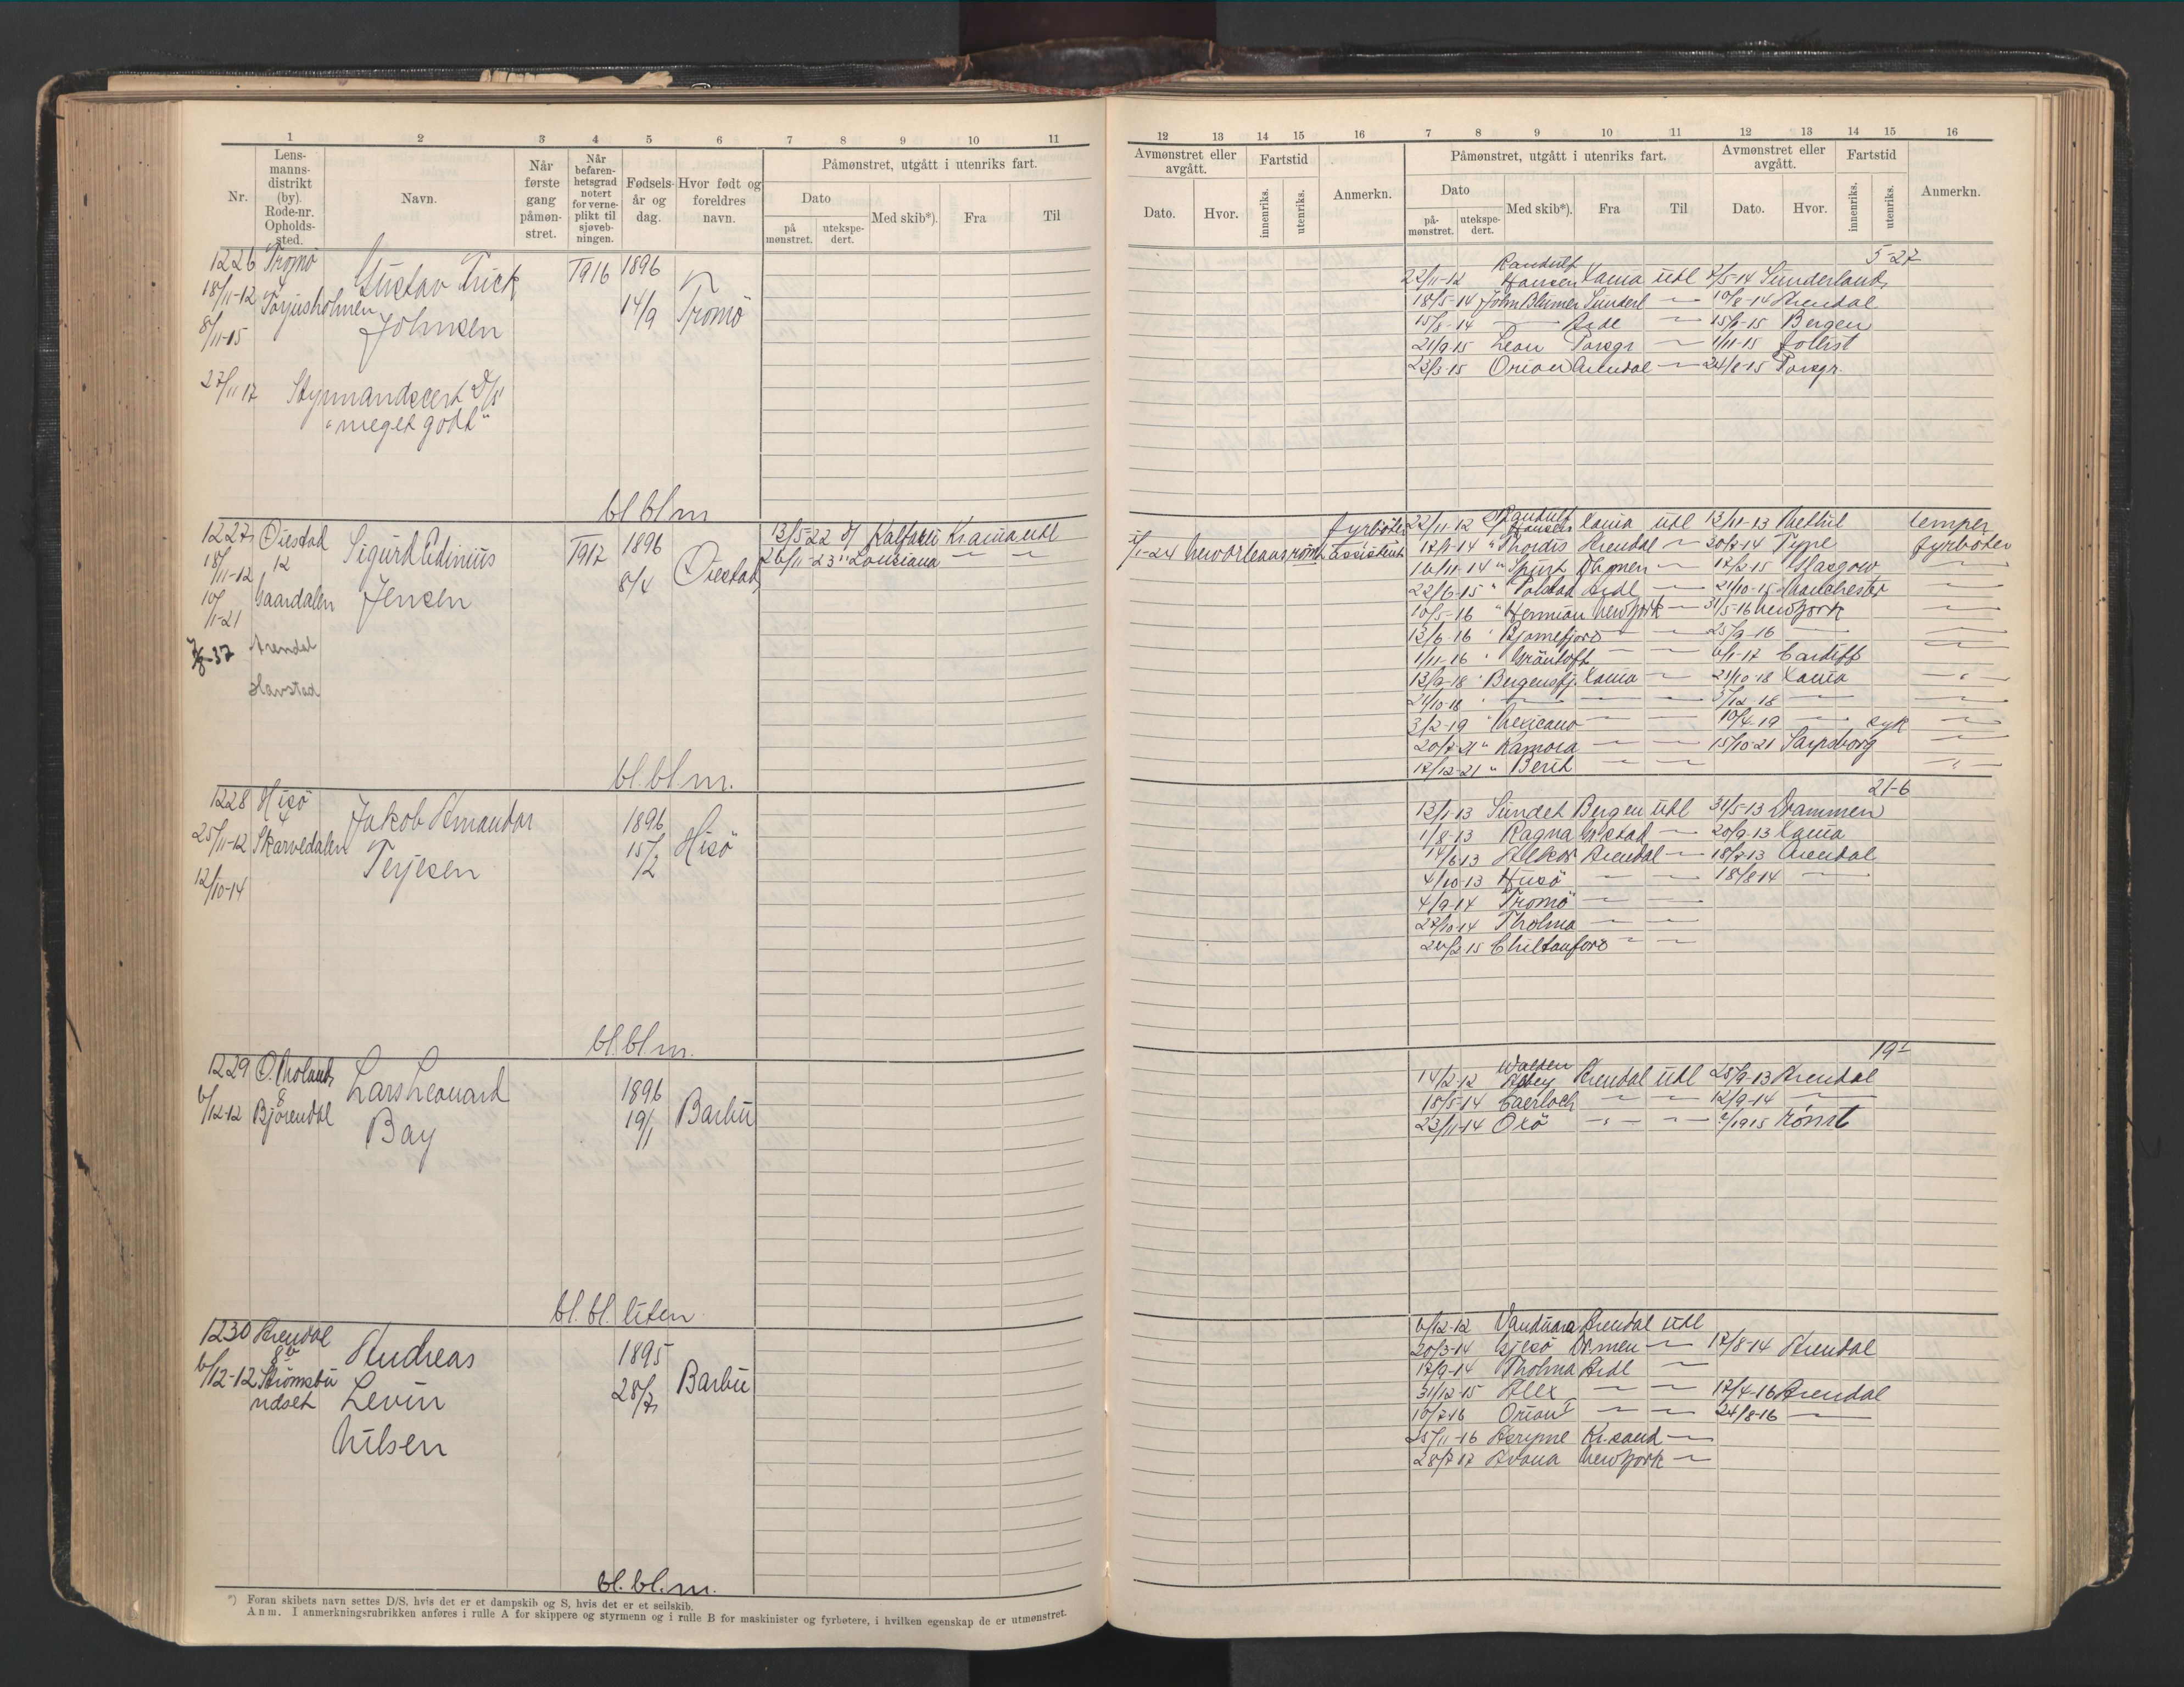 1 2 3 4 5 6 7 8 9 10 11
Nr.
Lens-
manns-
distrikt
(by).
Rode-nr.
Opholds-
sted.
Navn.
Når
første
gang
påmøn-
stret.
Når
befaren-
hetsgrad
notert
for verne-
plikt til
sjøveb-
ningen.
Fødsels-
år og
dag.
Hvor født og
foreldres
navn.
Påmønstret, utgått i utenriks fart.
Dato
på
mønstret.
utekspe-
dert.
Med skib*).
Fra
Til
1226 Tromø
18/11-12 Torjusholmen
8/11-15
27/11 17
Gustav
Johnsen
T916 1896
14/9 Tromö
"meget godt"
bl bl m
1227 Øiestad
18/11-12 12
Gaardalen
Arendal
Sigurd Edinius
Jensen
T917 1896
8/4 Øiestad
13/5-22 Kr.ania utl
26/11-23 " Louisiana — —
bl. bl m.
1228 Hisö
4
25/11-12 Skarvedalen
12/10-14
Jakob Amandus
Terjesen
1896
15/2 Hisö
bl. bl m.
1229
8
6/12-12 Bjorendal
Lars Leonard
Bay
1896
19/1 Barbu
bl. bl. liten
1230 Arendal
8b
6/12-12 Strømsbu
ndset
Andreas
Levin
Nilsen
1895
28/7 Barbu
bl. bl. m.
*) Foran skibets navn settes D/S, hvis det er et dampskib og S, hvis det er et seilskib.
Anm. I anmerkningsrubrikken anføres i rulle A for skippere og styrmenn og i rulle B for maskinister og fyrbøtere, i hvilken egenskap de er utmønstret.
12 13 14 15 16 7 8 9 10 11 12 13 14 15 16
Avmønstret eller
avgått.
Dato.
Hvor.
Fartstid
innenriks.
utenriks.
Anmerkn.
Påmønstret, utgått i utenriks fart.
Dato
på-
mønstret.
utekspe-
dert.
Med skib*).
Fra
Til
Avmønstret eller
avgått.
Dato.
Hvor.
Fartstid
innenriks.
utenriks.
Anmerkn.
5-27
22/11-12 Randulf Hansen Xania utl 2/5-14 Sunderland
18/5-14 John Blumer Sunderl — 10/8-14 Arendal
15/8-14 — Ardl — 15/6-15 Bergen
21/9 15 Leon Porsgr — 1/11-15
23/3-15 Orion Arendal — 24/8-15 Porsgr.
fyrböter 22/11-12 Randulf Hansen Xania utl 13/11-13 Methil lemper
New Orleans römt assistent 17/1-14 " Thordis Arendal — 30/7-14 Tyne fyrböter
16/11-14 " — 17/2-15 Glasgow —
22/6-15 " Ardl — 21/10-15 Manchester
10/5-16 " Hermion New York — 31/5-16 New York —
13/6-16 " Bjornefjord — — 25/9-16 — —
1/11-16 " Gräntoft — — 6/1-17 Cardiff —
13/9-18 " Bergensfj. Xania — 21/10-18 Xania —
21/10-18 — — — 3/12-18 — —
3/2-19 " Mexicano — — 10/4-19 — syk —
20/7-21 " Ramora — — 15/10-21 Sarpsborg —
17/12-21 " Berit — — —
21-6
13/1-13 Sundet Bergen utl 31/5-13 Drammen
1/8-13 Ragna — 20/9-13 Xania
14/6 13 Arendal — 18/7-13 Arendal
4/10-13 Hisö — — 18/8 14 —
4/9-14 Tromö — —
27/10-14 Tholma — —
20/2 15 Chiltonford — —
19-
14/2-12 Walden Abbey Arendal utl 25/9-13 Arendal
18/5-14 Caerloch — — 12/9-14 —
23/11-14 Oxö — — 1915 römt
6/12-12 Vanduara Arendal utl
20/3-14 Gjesö Dr.men — 17/8-14 Arendal
17/9-14 Tholma Ardl —
31/12-15 Alex — — 17/4-16 Arendal
10/7 16 Orion I — — 24/8-16 —
25/11-16 Kr.sand —
28/7 17 Avona New York —